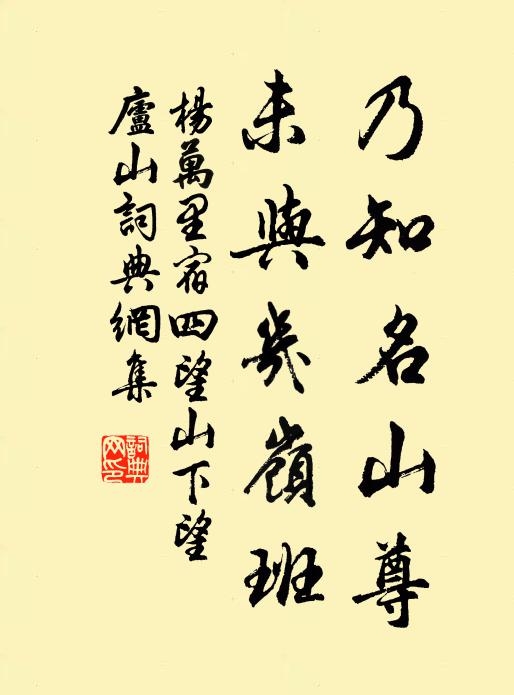 乃知名山尊
未與衆嶺班
楊萬里宿四望山下望
廬山詞典網集
詞典网印